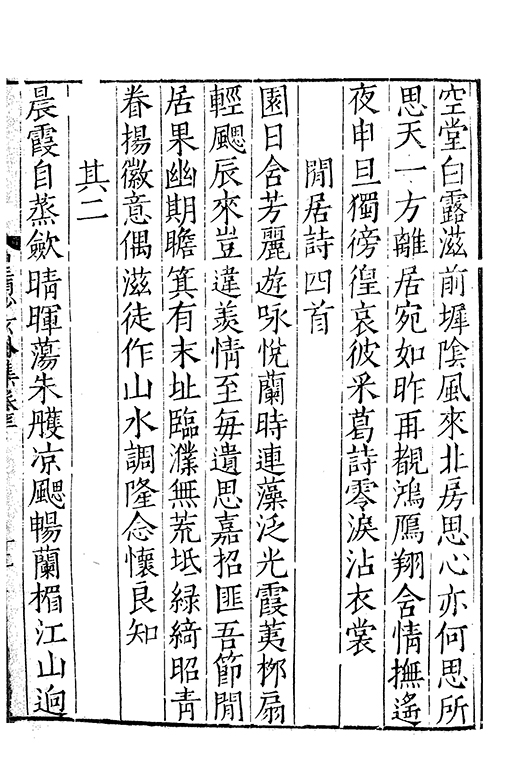 空堂白露滋前墀陰風來北房思心亦何思所
思天一方離居宛如昨再覩鴻鴈翔含情撫遙
夜申旦獨徬徨哀彼采葛詩零淚沾衣裳
閒居詩四首
園日含芳麗遊咏悅蘭時連藻泛光霞荑栁扇
輕颸辰來豈違羨情至每遺思嘉招匪吾節閒
居果幽期瞻箕有末址臨濮無荒坻緑綺昭青
眷揚徽意偶滋徒作山水調隆念懷良知
其二
晨霞自蒸歘晴暉蕩朱雘凉颸暢蘭楣江山逈